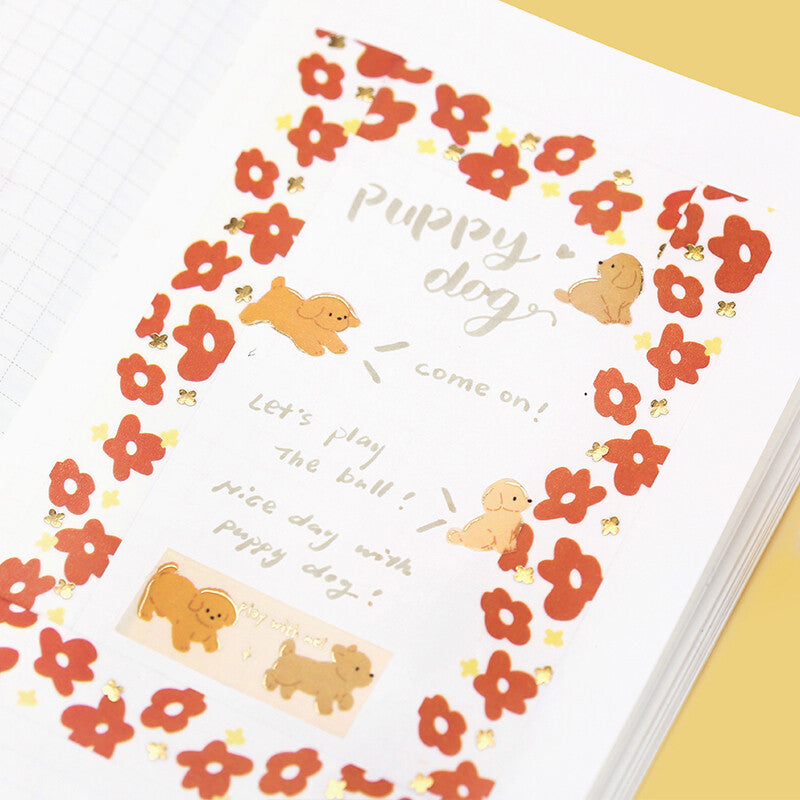 puppy
dog
come on!
Let's play
The ball!
Nice day with
puppy dog!
play with me!